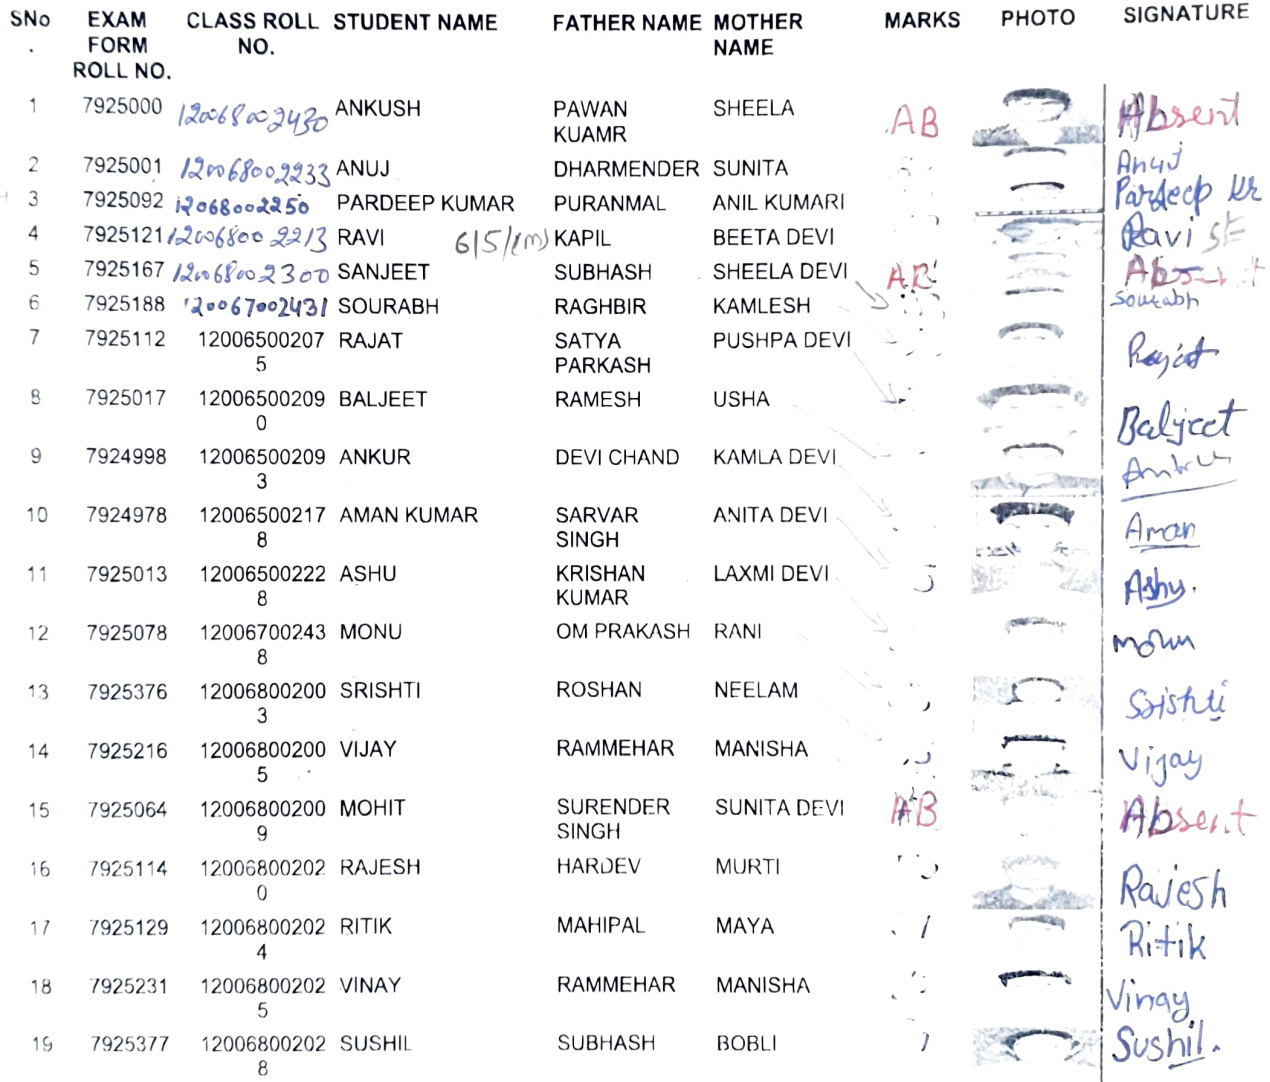 SNo EXAM CLASS ROLL STUDENT NAME FATHER NAME MOTHER MARKS PHOTO SIGNATURE
. FORM NO. NAME
ROLL NO.
1 7925000 120068002430 ANKUSH PAWAN SHEELA AB Absent
KUAMR
2 7925001 120068002233 ANUJ DHARMENDER SUNITA Anuj
3 7925092 12068002250 PARDEEP KUMAR PURANMAL ANIL KUMARI Pardeep Kr
4 7925121 120068002213 RAVI KAPIL BEETA DEVI Ravi
5 7925167 120068002300 SANJEET SUBHASH SHEELA DEVI AB Absent
6 7925188 120067002431 SOURABH RAGHBIR KAMLESH Sourabh
7 7925112 12006500207 RAJAT SATYA PUSHPA DEVI Rajat
5 PARKASH
8 7925017 12006500209 BALJEET RAMESH USHA Baljeet
0
9 7924998 12006500209 ANKUR DEVI CHAND KAMLA DEVI Ankur
3
10 7924978 12006500217 AMAN KUMAR SARVAR ANITA DEVI Aman
8 SINGH
11 7925013 12006500222 ASHU KRISHAN LAXMI DEVI Ashu.
8 KUMAR
12 7925078 12006700243 MONU OM PRAKASH RANI monu
8
13 7925376 12006800200 SRISHTI ROSHAN NEELAM Srishti
3
14 7925216 12006800200 VIJAY RAMMEHAR MANISHA Vijay
5
15 7925064 12006800200 MOHIT SURENDER SUNITA DEVI AB Absent
9 SINGH
16 7925114 12006800202 RAJESH HARDEV MURTI Rajesh
0
17 7925129 12006800202 RITIK MAHIPAL MAYA Ritik
4
18 7925231 12006800202 VINAY RAMMEHAR MANISHA Vinay
5
19 7925377 12006800202 SUSHIL SUBHASH BOBLI Sushil.
8